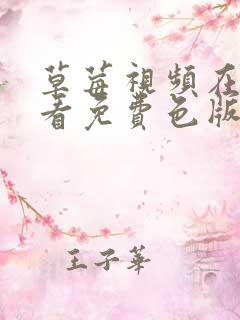 草莓視頻在
看免費色版
王子華